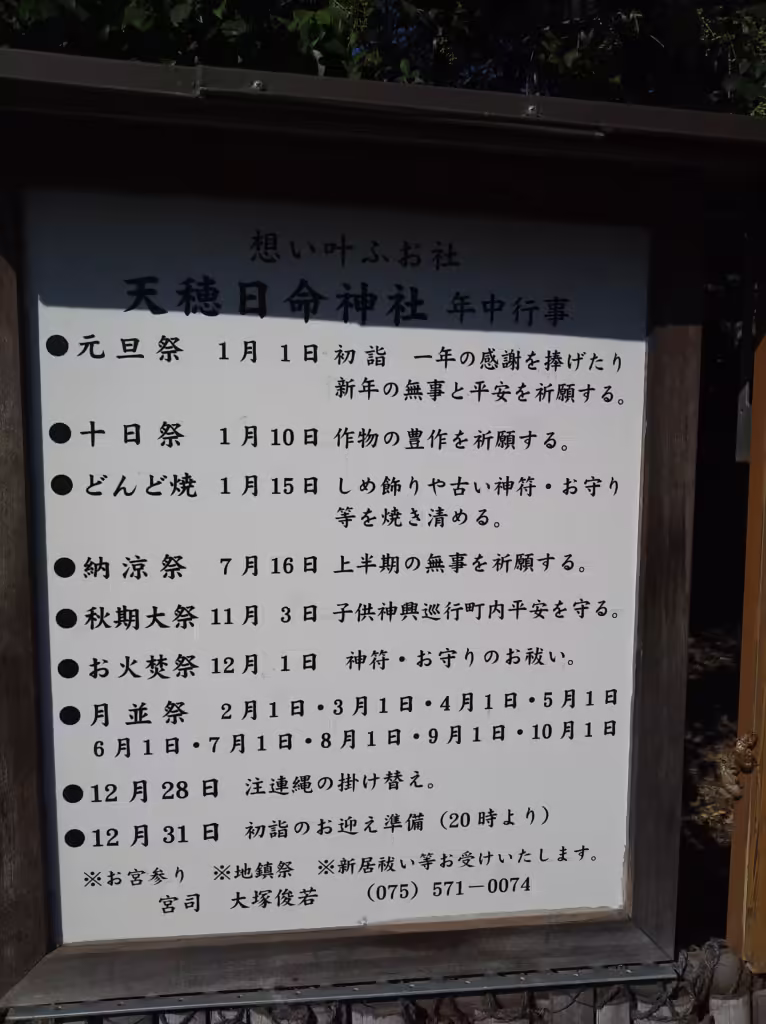 想い叶ふお社
天穂日命神社 年中行事
●元旦祭 1月 1日 初詣 一年の感謝を捧げたり
新年の無事と平安を祈願する。
●十日祭 1月10日 作物の豊作を祈願する。
●どんど焼 1月15日 しめ飾りや古い神符・お守り
等を焼き清める。
●納涼祭 7月16日 上半期の無事を祈願する。
●秋期大祭 11月 3日 子供神興巡行町内平安を守る。
●お火焚祭 12月 1日 神符・お守りのお祓い。
●月並祭 2月1日・3月1日・4月1日・5月1日
6月1日・7月1日・8月1日・9月1日・10月1日
●12月28日 注連縄の掛け替え。
●12月31日 初詣のお迎え準備（20時より）
※お宮参り ※地鎮祭 ※新居祓い等お受けいたします。
宮司 大塚俊若 （075）571－0074